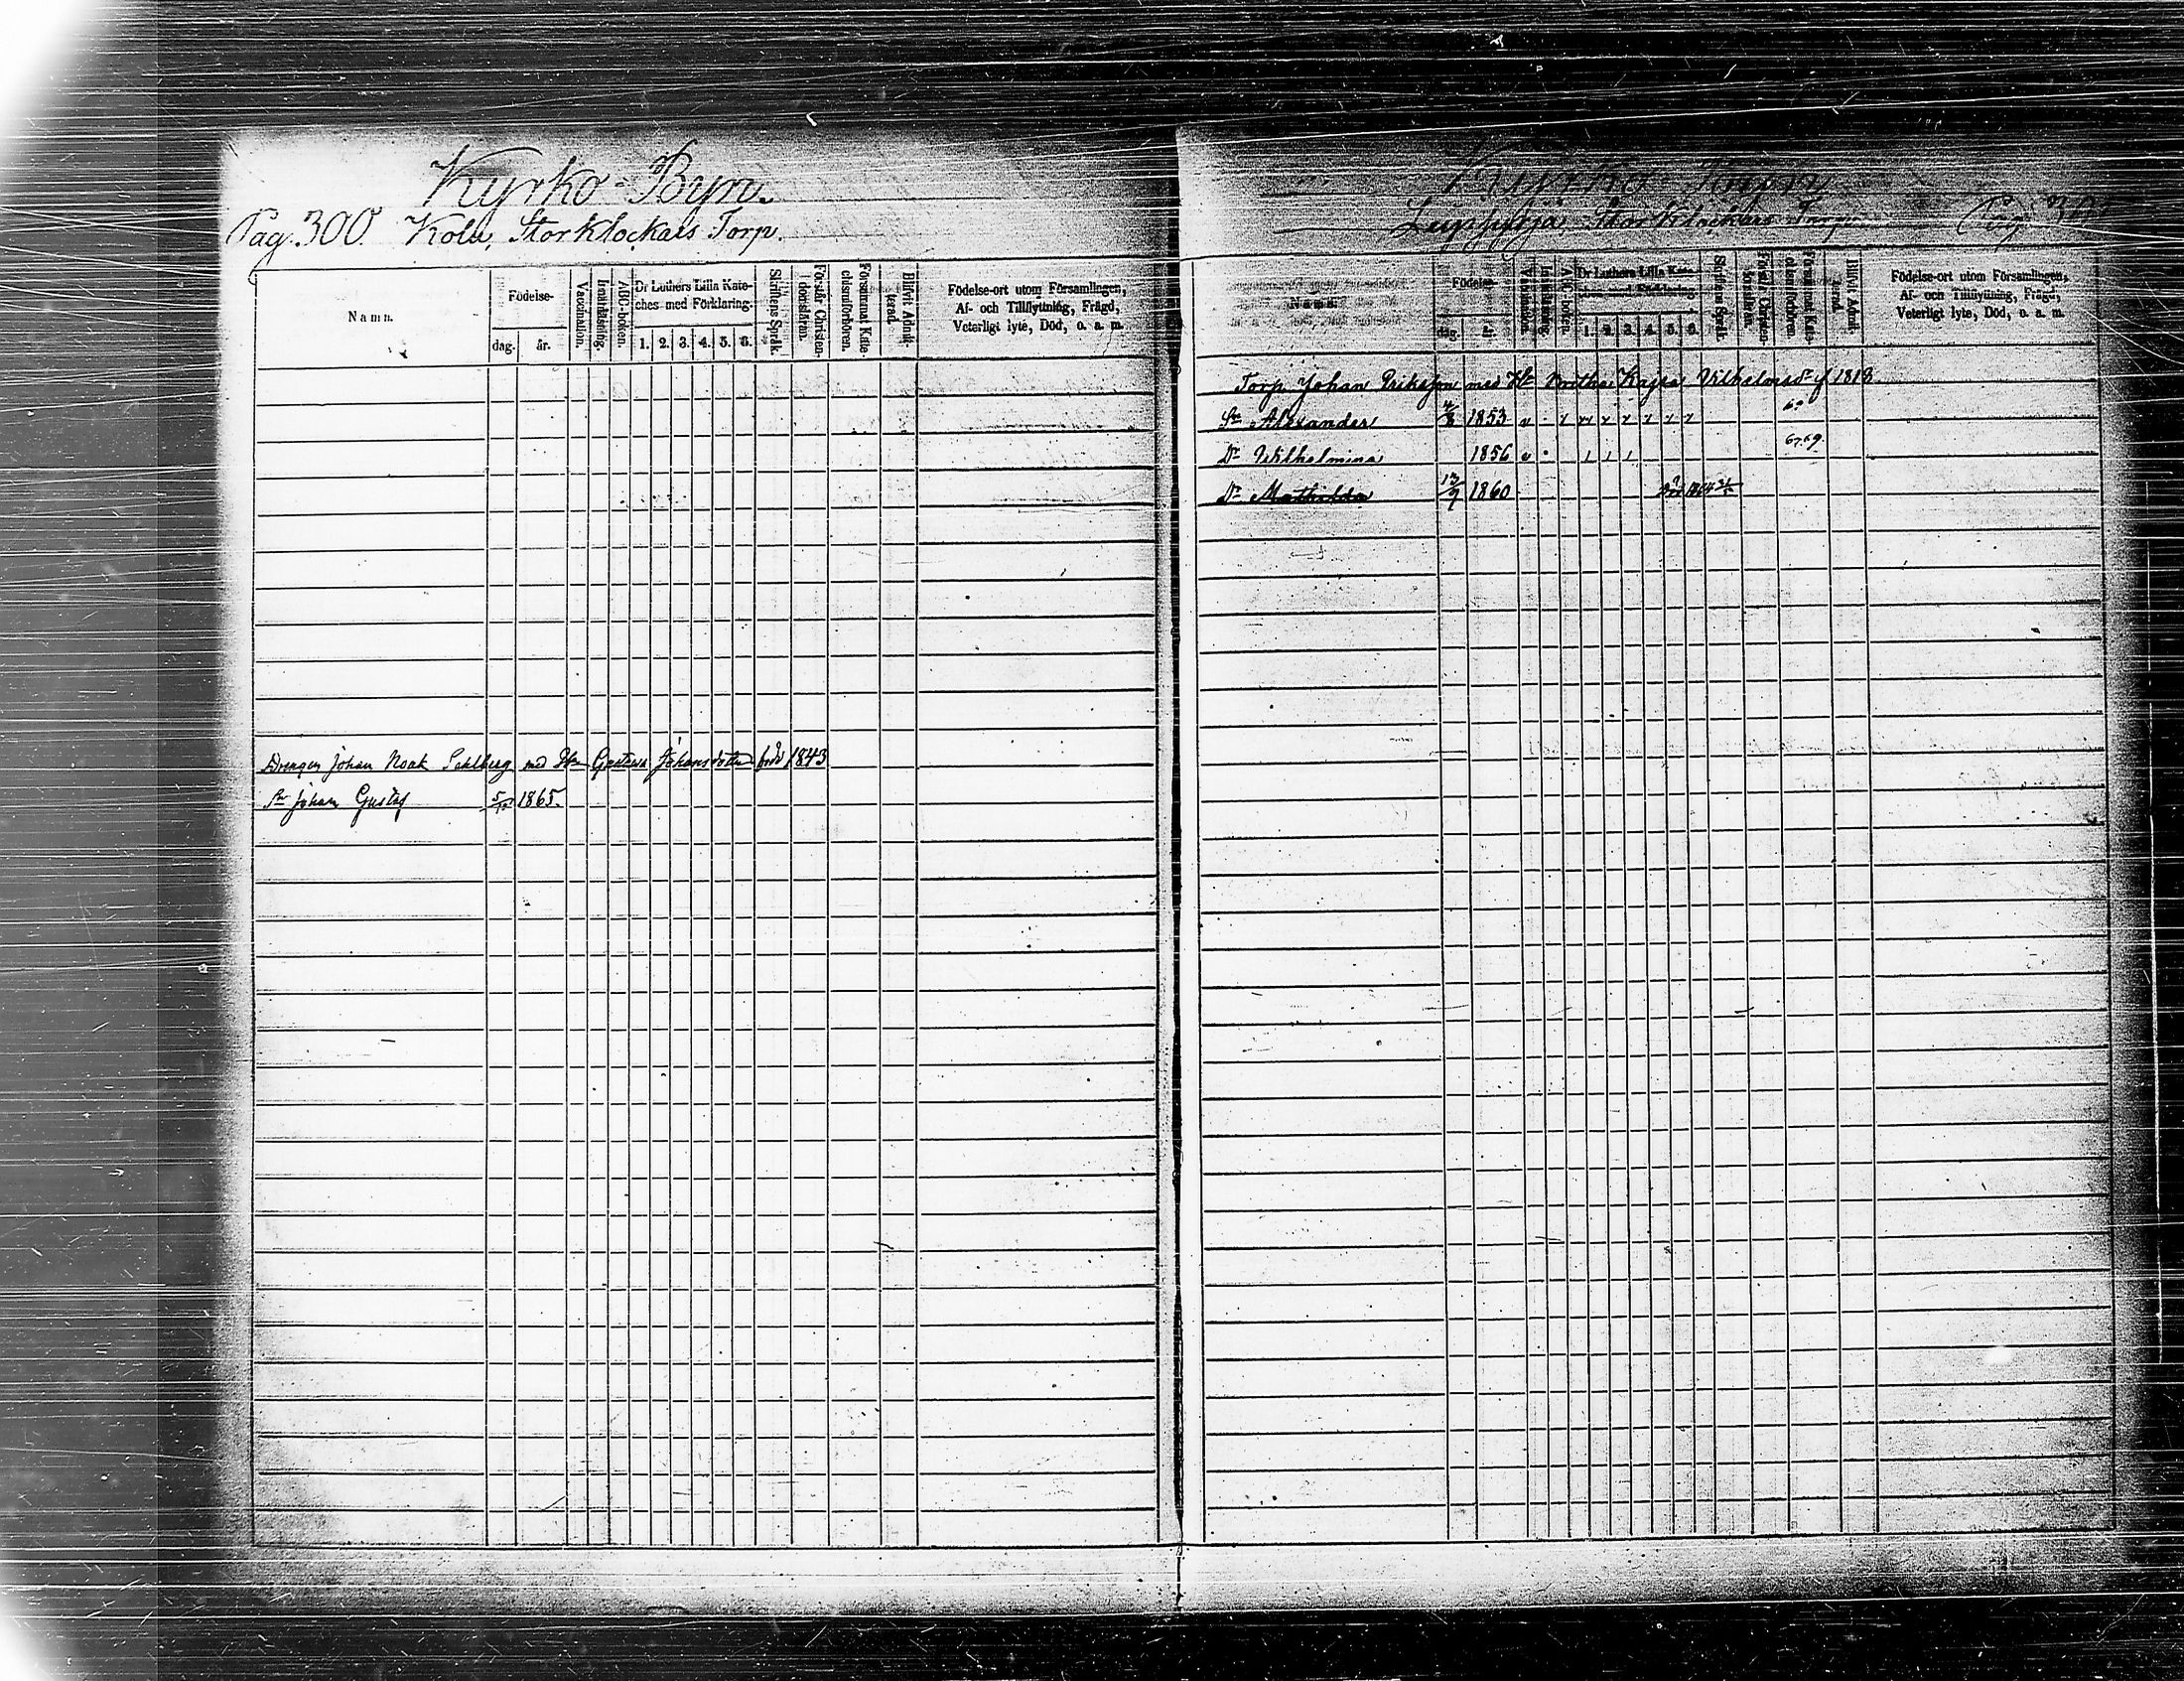 Kyrko-Byn.
Pag. 300. Kola, Storklockars Torp.
Namn.
Födelse-
dag. år.
Vaccination.
Innanläsning.
ABC-boken.
Dr Luthers Lilla Kate-
ches med Förklaring.
1. 2. 3. 4. 5. 6.
Skriftens Språk.
Förstår Christen-
domsläran.
Försummat Kate-
chismiförhören.
Blifvit Admit-
terad.
Födelse-ort utom Församlingen,
Af- och Tillflyttning, Frägd,
Veterligt lyte, Död, o. a. m.
Drengen Johan Noak Sahlberg med Hu Gustava Johansdotter född 1843
Sn Johan Gustaf 5/10 1865.
Kyrko Byn
Storklockars Torp Pag.
Namn.
Födelse-
dag. år.
Vaccination.
Innanläsning.
ABC-boken.
Dr Luthers Lilla Kate-
ches med Förklaring.
1. 2. 3. 4. 5. 6.
Skriftens Språk.
Förstår Christen-
domsläran.
Försummat Kate-
chismiförhören.
Blifvit Admit-
terad.
Födelse-ort utom Församlingen,
Af- och Tillflyttning, Frägd,
Veterligt lyte, Död, o. a. m.
Torp. Johan Eriksson med Hu Britha Kajsa Vilhelmsdr f 1818
Sn Alexander 1853 v
Dr Wilhelmina 1856 v 67.69.
Dr Mathilda 1860 död 1864